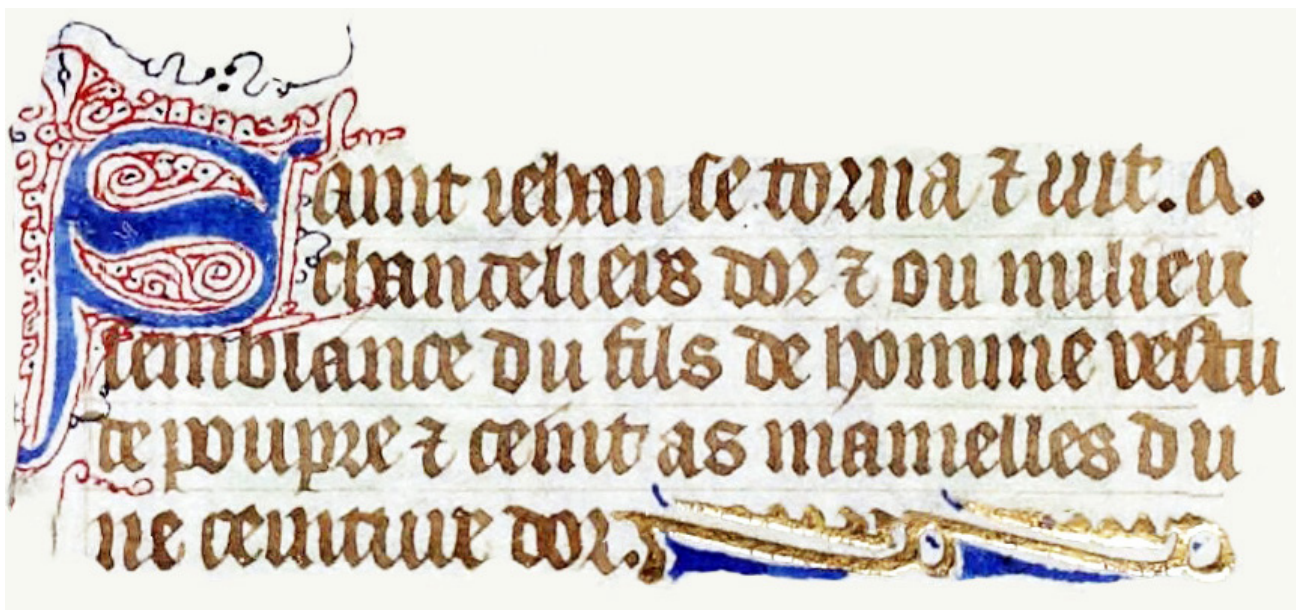 Saint iehan se torna ⁊ uit. A.
chanceliers dor ⁊ ou milieu
semblance du fils de homme vestu
de poupre ⁊ ceint as mamelles du
ne ceinture dor.